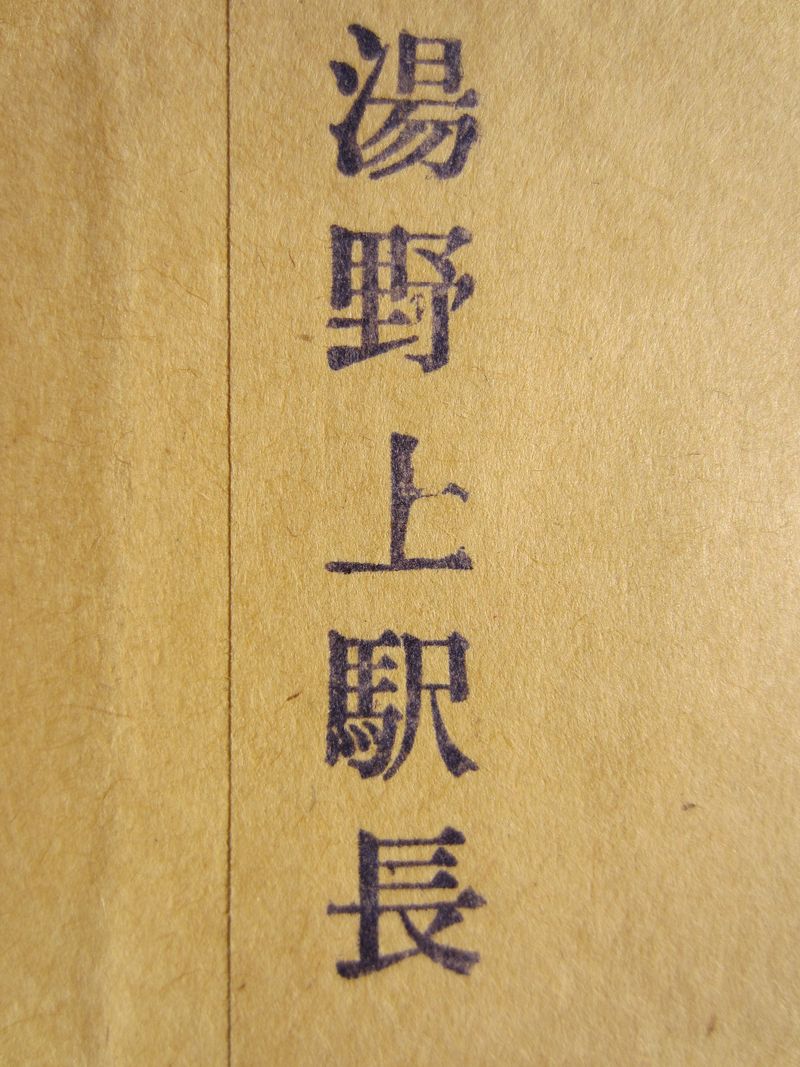 湯野上駅長